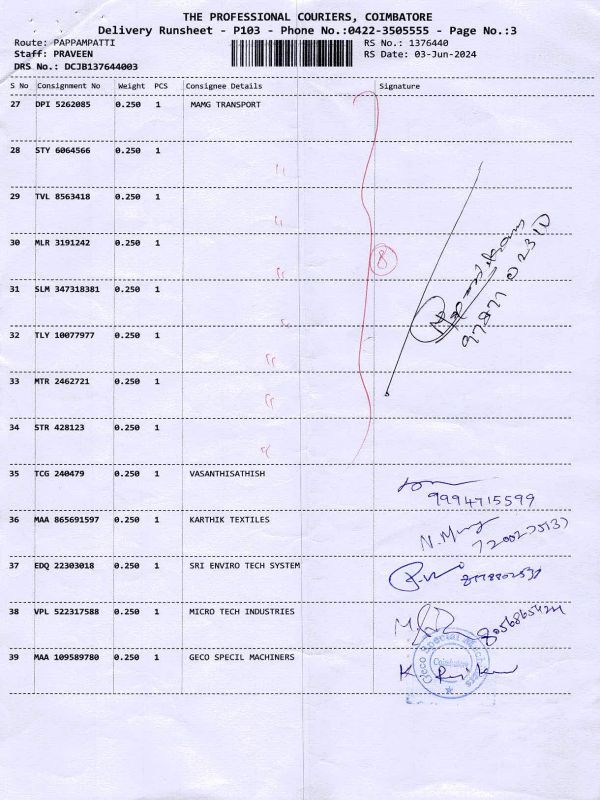 THE PROFESSIONAL COURIERS, COIMBATORE
Delivery Runsheet - P103 - Phone No.:0422-3505555 - Page No.:3
Route: PAPPAMPATTI RS No.: 1376440
Staff: PRAVEEN RS Date: 03-Jun-2024
DRS No.: DCJB137644003
S No Consignment No Weight PCS Consignee Details Signature
27 DPI 5262085 0.250 1 MAMG TRANSPORT
28 STY 6064566 0.250 1 "
29 TVL 8563418 0.250 1 "
30 MLR 3191242 0.250 1 "
8
31 SLM 347318381 0.250 1 "
32 TLY 10077977 0.250 1 "
33 MTR 2462721 0.250 1 "
34 STR 428123 0.250 1 "
35 TCG 240479 0.250 1 VASANTHISATHISH
9994715599
36 MAA 865691597 0.250 1 KARTHIK TEXTILES
37 EDQ 22303018 0.250 1 SRI ENVIRO TECH SYSTEM
38 VPL 522317588 0.250 1 MICRO TECH INDUSTRIES
39 MAA 109589780 0.250 1 GECO SPECIL MACHINERS
Geco Special Coimbatore